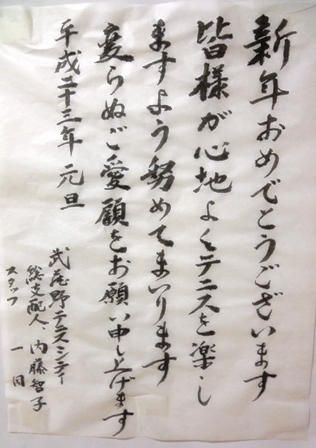 新年おめでとうございます
皆様が心地よくテニスを楽し
ますよう努めてまいります
変らぬご愛顧をお願い申し上げます
平成二十三年 元旦
武蔵野テニスシティー
総支配人 内藤智子
スタッフ 一同